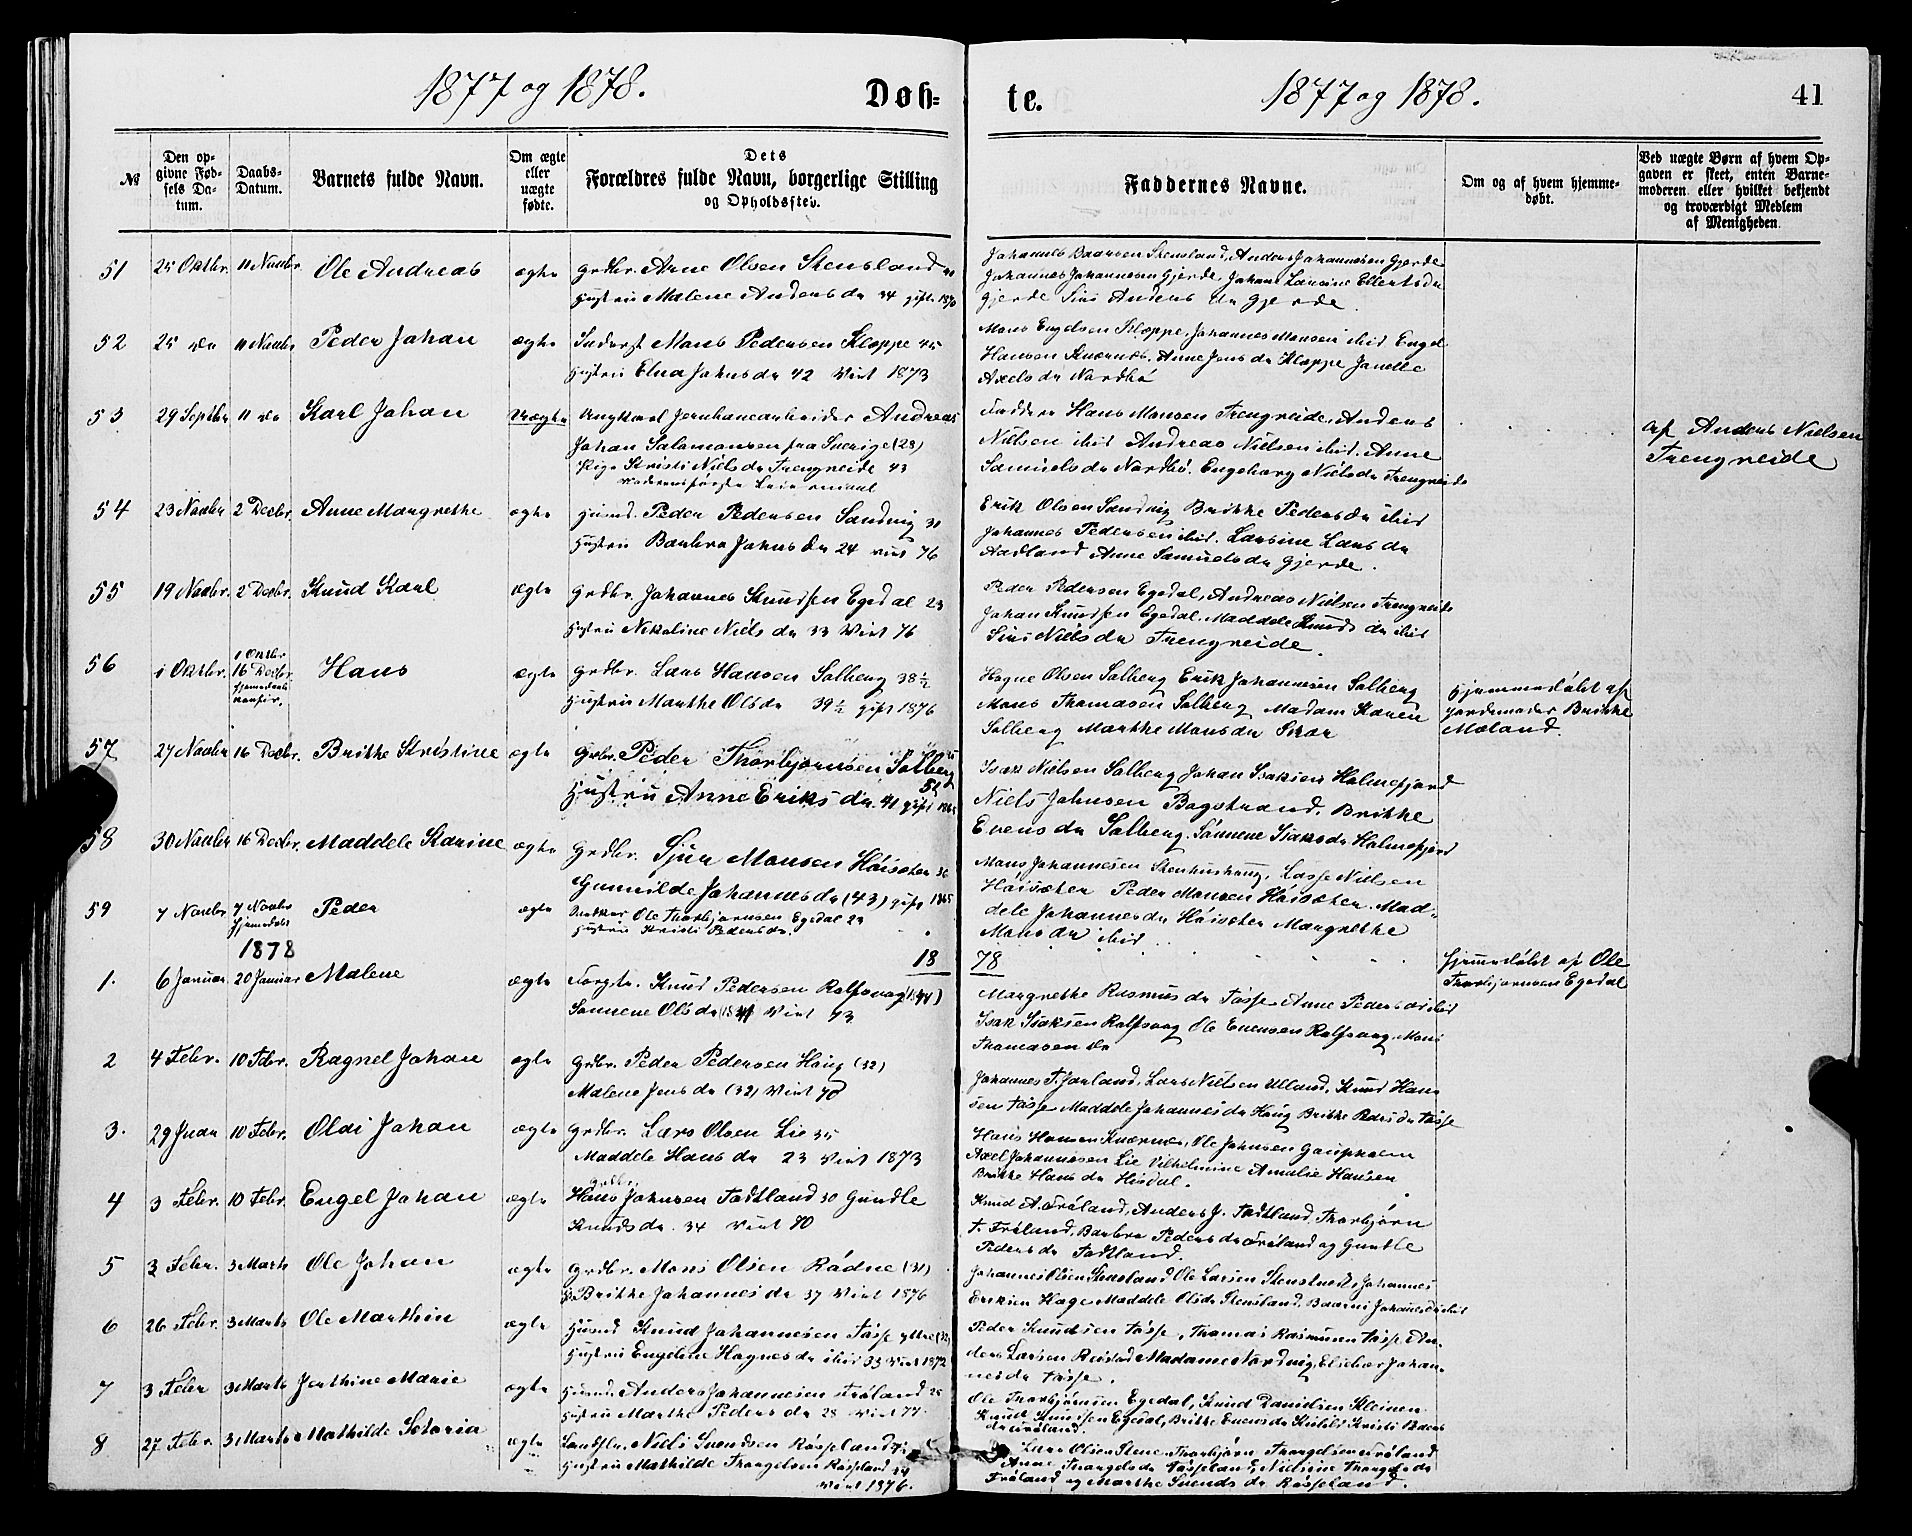 1877 og 1878.
Døb-
te.
1877 og 1878.
41
№
Den op-
givne Fød-
sels Da-
tum.
Daabs-
Datum.
Barnets fulde Navn.
Om ægte
eller
uægte
fødte.
Dets
Forældres fulde Navn, borgerlige Stilling
og Opholdssted.
Faddernes Navne.
Om og af hvem hjemme-
døbt.
Ved uægte Børn af hvem Op-
gaven er skeet, enten Barne-
moderen eller hvilket bekjendt
og troværdigt Medlem
af Menigheden.
51 25 Oktbr. 11 Novbr. Ole Andreas ægte Grdbr. Arne Olsen Stensland
Hustru Malene Anders dr 34 gift 1870
Johannes Stensland, Anders Johannesen Gjerde
Johannes Johannesen Gjerde, Johane Ellertsdr
Gjerde Siri Anders dr Gjerde
52 25 11 Novbr Peder Johan ægte Inderst Mons Pedersen Kloppe 45
Hustru Elna Johns dr 42 Viet 1873
Mons Engelsen Kloppe, Johannes Monsen ibid Engel
Hansen, Anne Jens dr Kloppe
Axels dr Nordbø
53 29 Septbr 11 Karl Johan Uægte Ungkarl Jernbanearbeider Andreas
Johan Salamonsen fra Sverige (28)
Pige Kristi Niels dr Trengereide 43
Faddere Hans Monsen Trengereide, Anders
Nielsen ibid Andreas Nielsen ibid. Anne
Samuels dr Nordbø. Engeborg Niels dr Trengereide
af Anders Nielsen
Trengereide
54 23 Novbr 2 Decbr. Anne Margrethe ægte Husmd. Peder Pedersen Sandvig 31
Hustru Barbra Johns dr 24 viet 76
Erik Olsen Sandvig Brithe Peders dr ibid
Johannes Pedersen ibid. Larsine Lars dr
Aadland Anne Samuels dr Gjerde.
55 19 Novbr. 2 Decbr. Knud Karl ægte Grdbr. Johannes Knudsen Egedal 23
Hustru Nikoline Niels dr 33 Viet 76
Peder Pedersen Egedal, Andreas Nielsen Trengereide
Johan Knudsen Egedal. Maddele Knuds dr ibid
Siri Niels dr Trengereide.
56 1 Oktbr. 1 Oktbr
16 Decbr. Hans ægte Grdbr. Lars Hansen Solberg 38 1/2
Hustru Marthe Ols dr 39 1/2 gift 1876
Hogne Olsen Solberg Erik Johannesen Solberg
Mons Thomasen Solberg Madam Karen
Solberg Marthe Mons dr
Hjemmedøbt af
Jordemoder Brithe
Mæland.
57 27 Novbr 16 Decbr. Brithe Kristine ægte Grdbr. Peder Thorbjørnsen Solberg
51
Hustru Anne Eriks dr. 41 gift
Isak Nielsen Solberg Johan Isaksen Holmefjord
Niels Johnsen Bogstrand. Brithe
Evens dr Solberg. Sønneve Isaks dr Holmefjord
58 30 Novbr 16 Decbr. Maddele Karine ægte Grdbr. Sjur Monsen Høisæter 36
Gunnilde Johannes dr (43) gift 1865
Mons Johannesen Stenhushaug, Lasse Nielsen
Høisæter Peder Monsen Høisæter. Mad-
dele Johannes dr Høisæter Margrethe
Mons dr ibid
59 7 Novbr 7 Novbr
hjemedøbt Peder ægte Ole Thorbjørnsen Egedal 29
Hustru Kristi Peders dr.
Hjemedøbt af Ole
Thorbjørnsen Egedal
1878
18
78
1. 6 Januar 20 Januar Malene ægte Knud Pedersen Rolfsvaag (1844)
Sønneve Ols dr (1841) Viet 73
Margrethe Rasmus dr Tøsse Anne Peders dr ibid
Isak Isaksen Rolfsvaag Ole Evensen Rolfsvaag, Mons
Thomasen
2 4 Febr. 10 Febr. Ragnel Johan ægte Grdbr. Peder Pedersen Haug (32)
Malene Jens dr (32) Viet 70
Johannes T. Jarland, Lars Nielsen Ulland, Knud Han-
sen Tøsse Maddele Johannes dr Haug Brithe Peders dr Tøsse
3. 29 Janr 10 Febr. Olai Johan ægte Grdbr. Lars Olsen Lie 35
Maddele Hans dr 23 Viet 1873
Hans Hansen, Ole Johnsen Gaupholm
Axel Johannesen Lie Vilhelmine Amalie Hansen
Brithe Hans dr Hisdal.
4 3 Febr. 10 Febr. Engel Johan ægte Grdbr.
Hans Johnsen Tødtland 30 Gundle
Knuds dr. 34 Viet 70
Knud A. Frøland, Anders J. Tødtland, Thorbjørn
T. Frøland, Barbra Peders dr Frøland og Gundle
Peders dr Tødtland.
5 3 Febr. 3 Marts Ole Johan ægte Grdbr. Mons Olsen Rødne (31)
Brithe Johannes dr 37 Viet 1876
Johannes Olsen Stensland Ole Larsen Stenstvedt, Johannes
Eriksen Hage Maddele Ols dr Stensland
6 26 Febr. 3 Marts Ole Marthin ægte Husmd Knud Johannesen Tøsse ytre
Hustru Engeline Hognes dr ibid 33 Viet 1872
Peder Knudsen Tøsse, Thomas Rasmusen Tøsse An-
ders Larsen Madame Nordvig, Johan-
nes dr Tøsse.
7 3 Febr 3 Marts Jenthine Marie ægte Husmd. Anders Johannesen Frøland 25
Hustru Marthe Peders dr 28 Viet 77.
Ole Thorbjørnsen Egedal, Knud Danielsen
Knud Knudsen Egedal, Brithe Evens dr Kristi Peders
dr Frøland.
8 27 Febr. 3 Marts Mathilde Setoria ægte Niels Svendsen Røsseland
Hustru Mathilde Thorgelsen Røsseland 24
Viet 1876.
Lars Olsen Stene Thorbjørn Thorgelsen Frøland
Anne Thorgels dr Røsseland, Nielsine Thorgels dr
Frøland og Marthe Svends dr Røsseland.